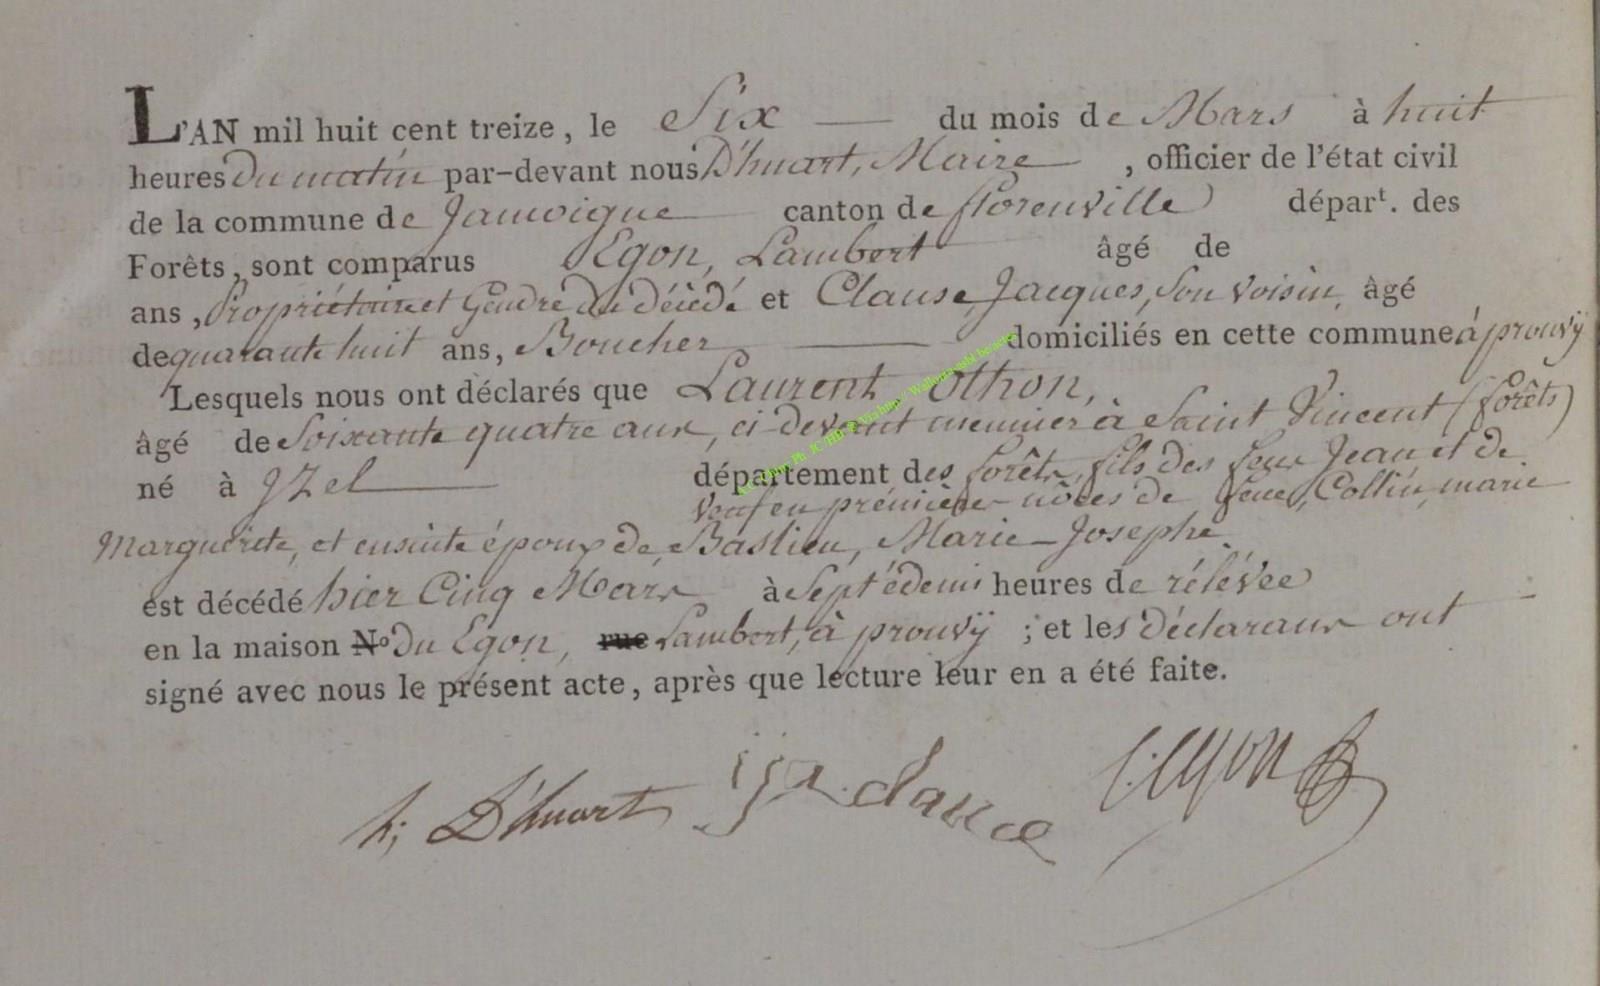 L'AN mil huit cent treize, le Six du mois de Mars à huit
heures du matin par-devant nous D'huart, Maire, officier de l'état civil
de la commune de Jamoigne canton de florenville départ. des
Forêts, sont comparus Egon, Lambert âgé de
ans, Propriétaire et Gendre du décédé et Clause, Jacques, son voisin, âgé
de quarante huit ans, Boucher domiciliés en cette commune à prouvÿ
Lesquels nous ont déclarés que Laurent Othon,
âgé de Soixante quatre ans, ci-devant meunier à Saint Vincent (forêts)
né à JZel département des forêts, fils des feux Jean et de
veuf en prémières nôces de feue, Collin, marie
Marguérite, et ensuite époux de Bastien, Marie-Josephe
est décédé hier Cinq Mars à Sept édemi heures de rélévée
en la maison N° du Egon, rue Lambert, à prouvÿ ; et les déclarans ont
signé avec nous le présent acte, après que lecture leur en a été faite.
h; D'huart jja clause l: egon